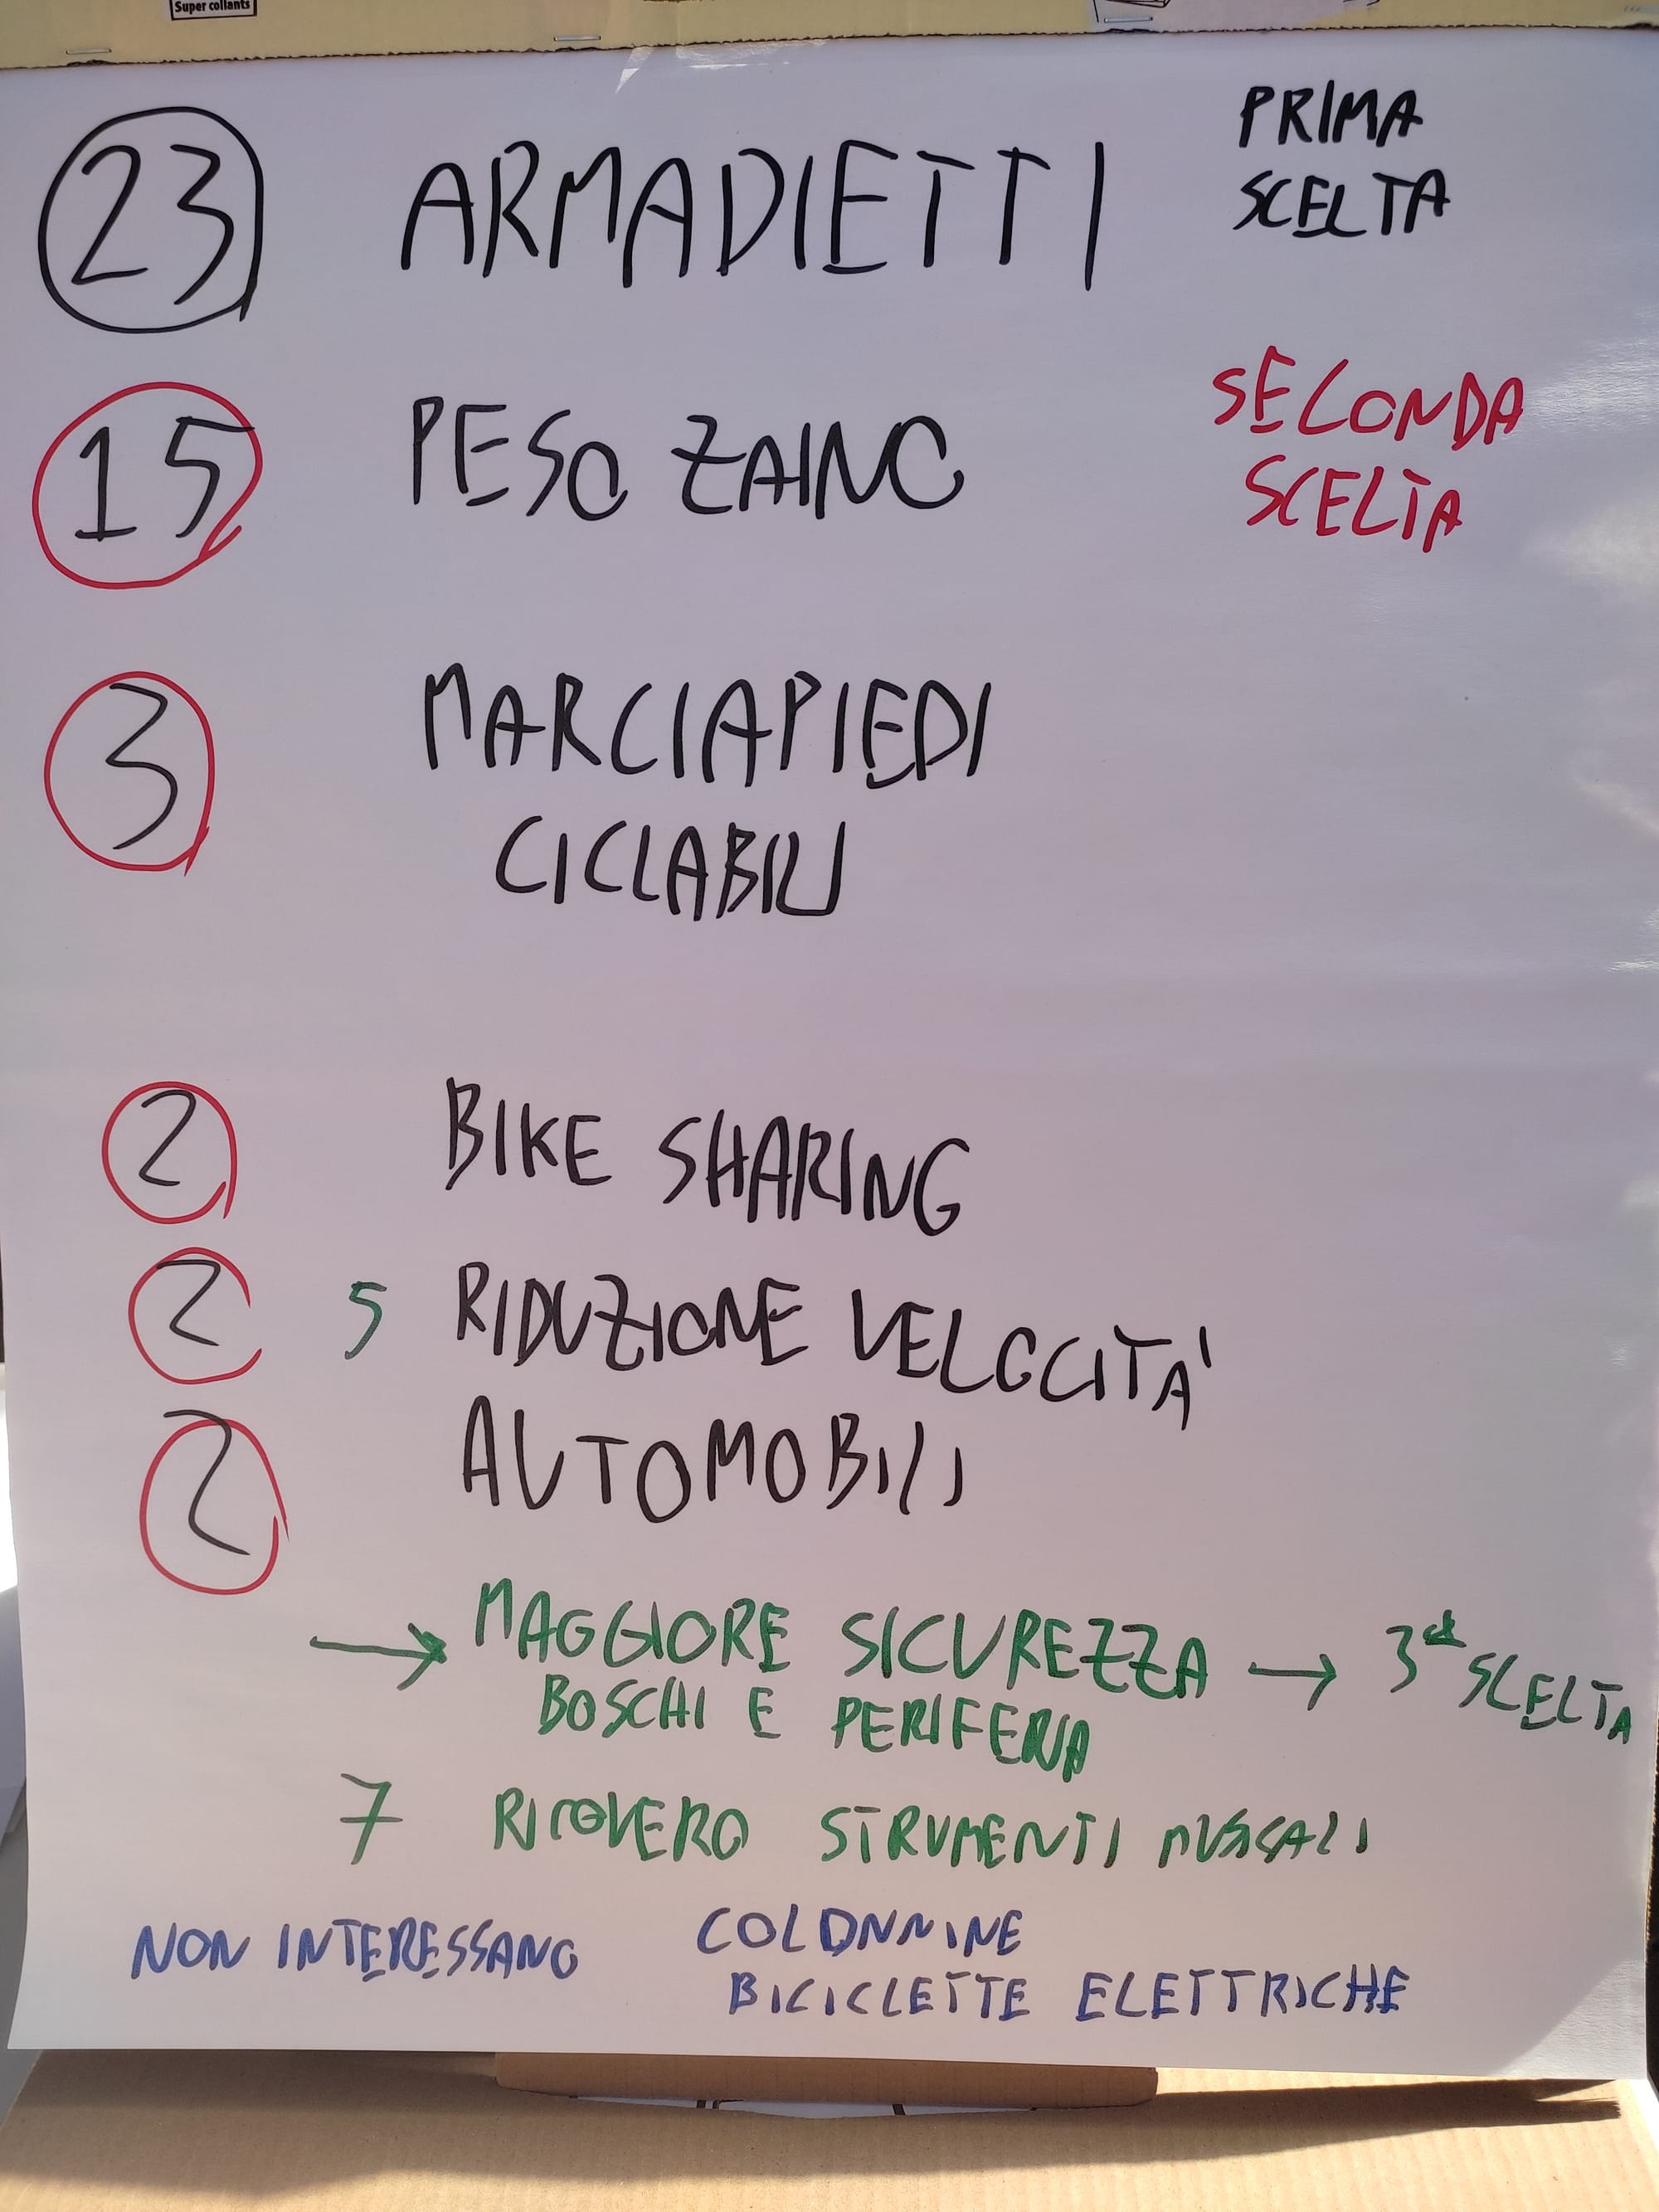 Super collants
23 ARMADIETTI PRIMA SCELTA
15 PESO ZAINO SECONDA SCELTA
3 MARCIAPIEDI
CICLABILI
2 BIKE SHARING
2 5 RIDUZIONE VELOCITA'
2 AUTOMOBILI
→ MAGGIORE SICUREZZA → 3ª SCELTA
BOSCHI E PERIFERIA
7 RICOVERO STRUMENTI MUSICALI
NON INTERESSANO COLONNINE
BICICLETTE ELETTRICHE